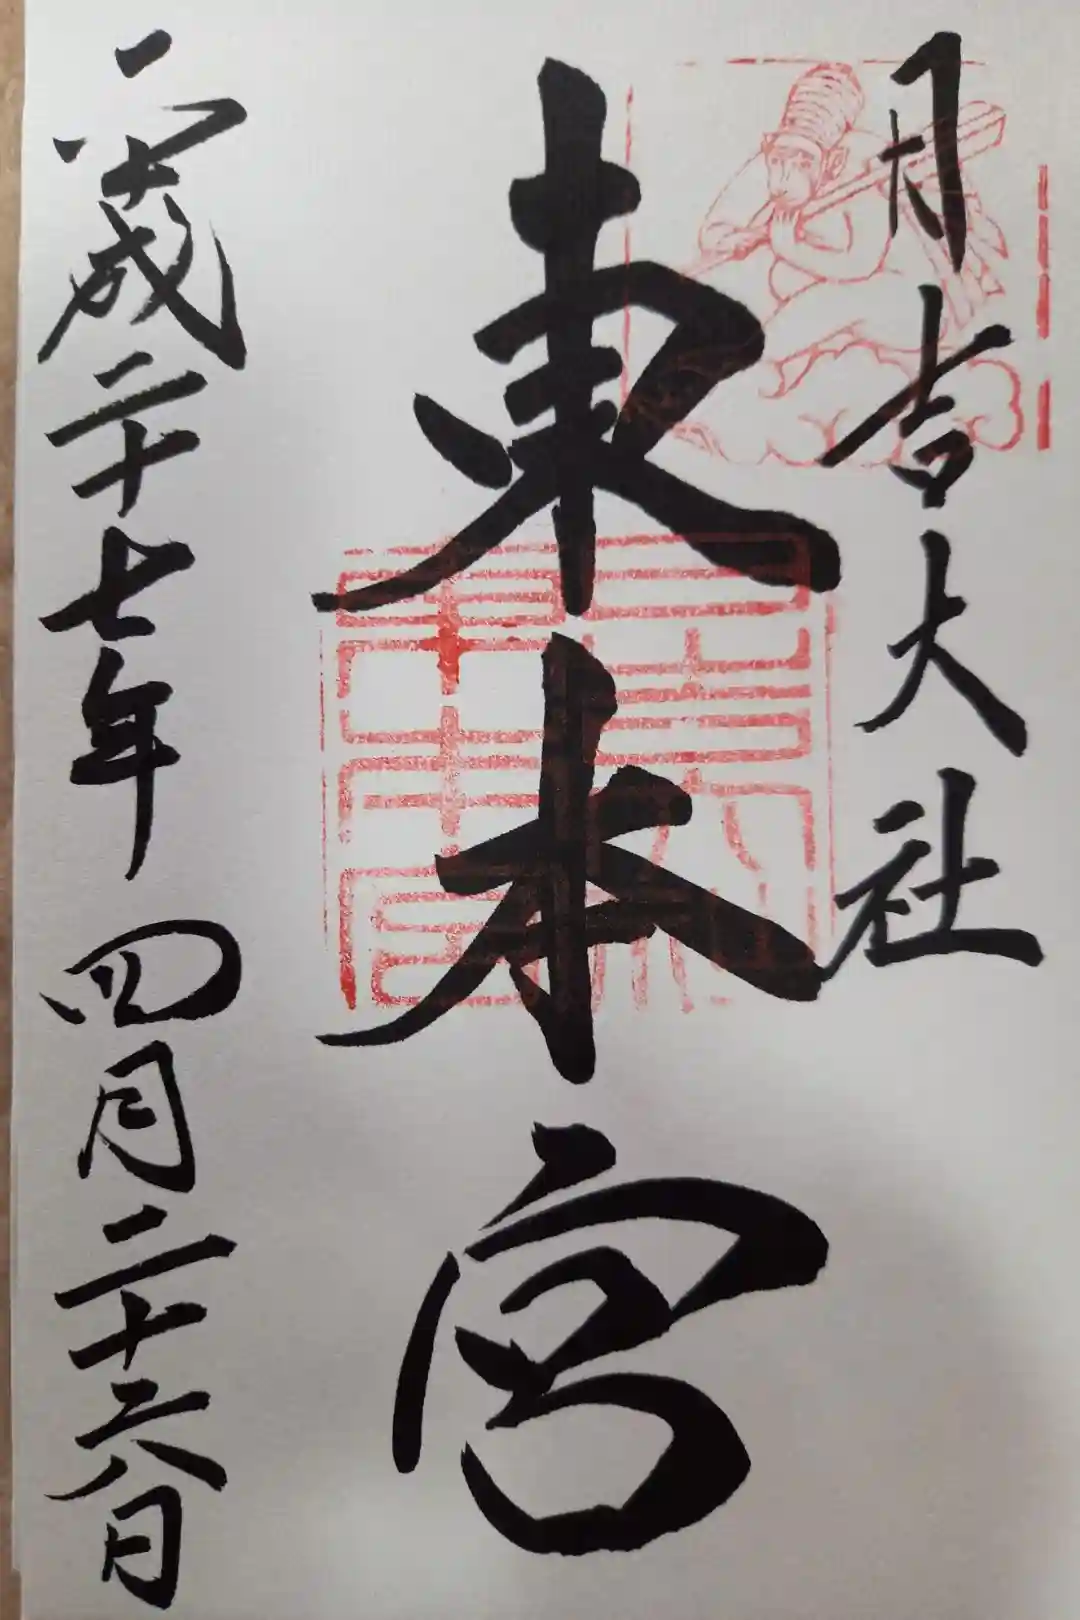 日吉大社
東本宮
平成二十七年 四月二十六日